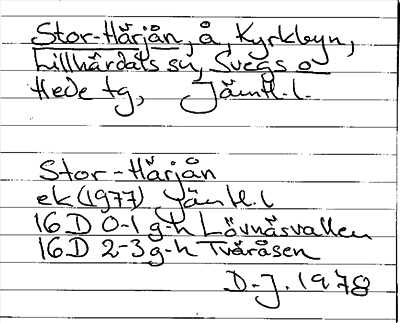 Stor-Härjån, å, Kyrkbyn,
Lillhärdals sn, Svegs o
Hede tg, Jämtl. l.
Stor-Härjån
ek (1977) Jämtl. l
16D 0-1 g-h Lövnäsvallen
16D 2-3 g-h Tväråsen
D.J. 1978